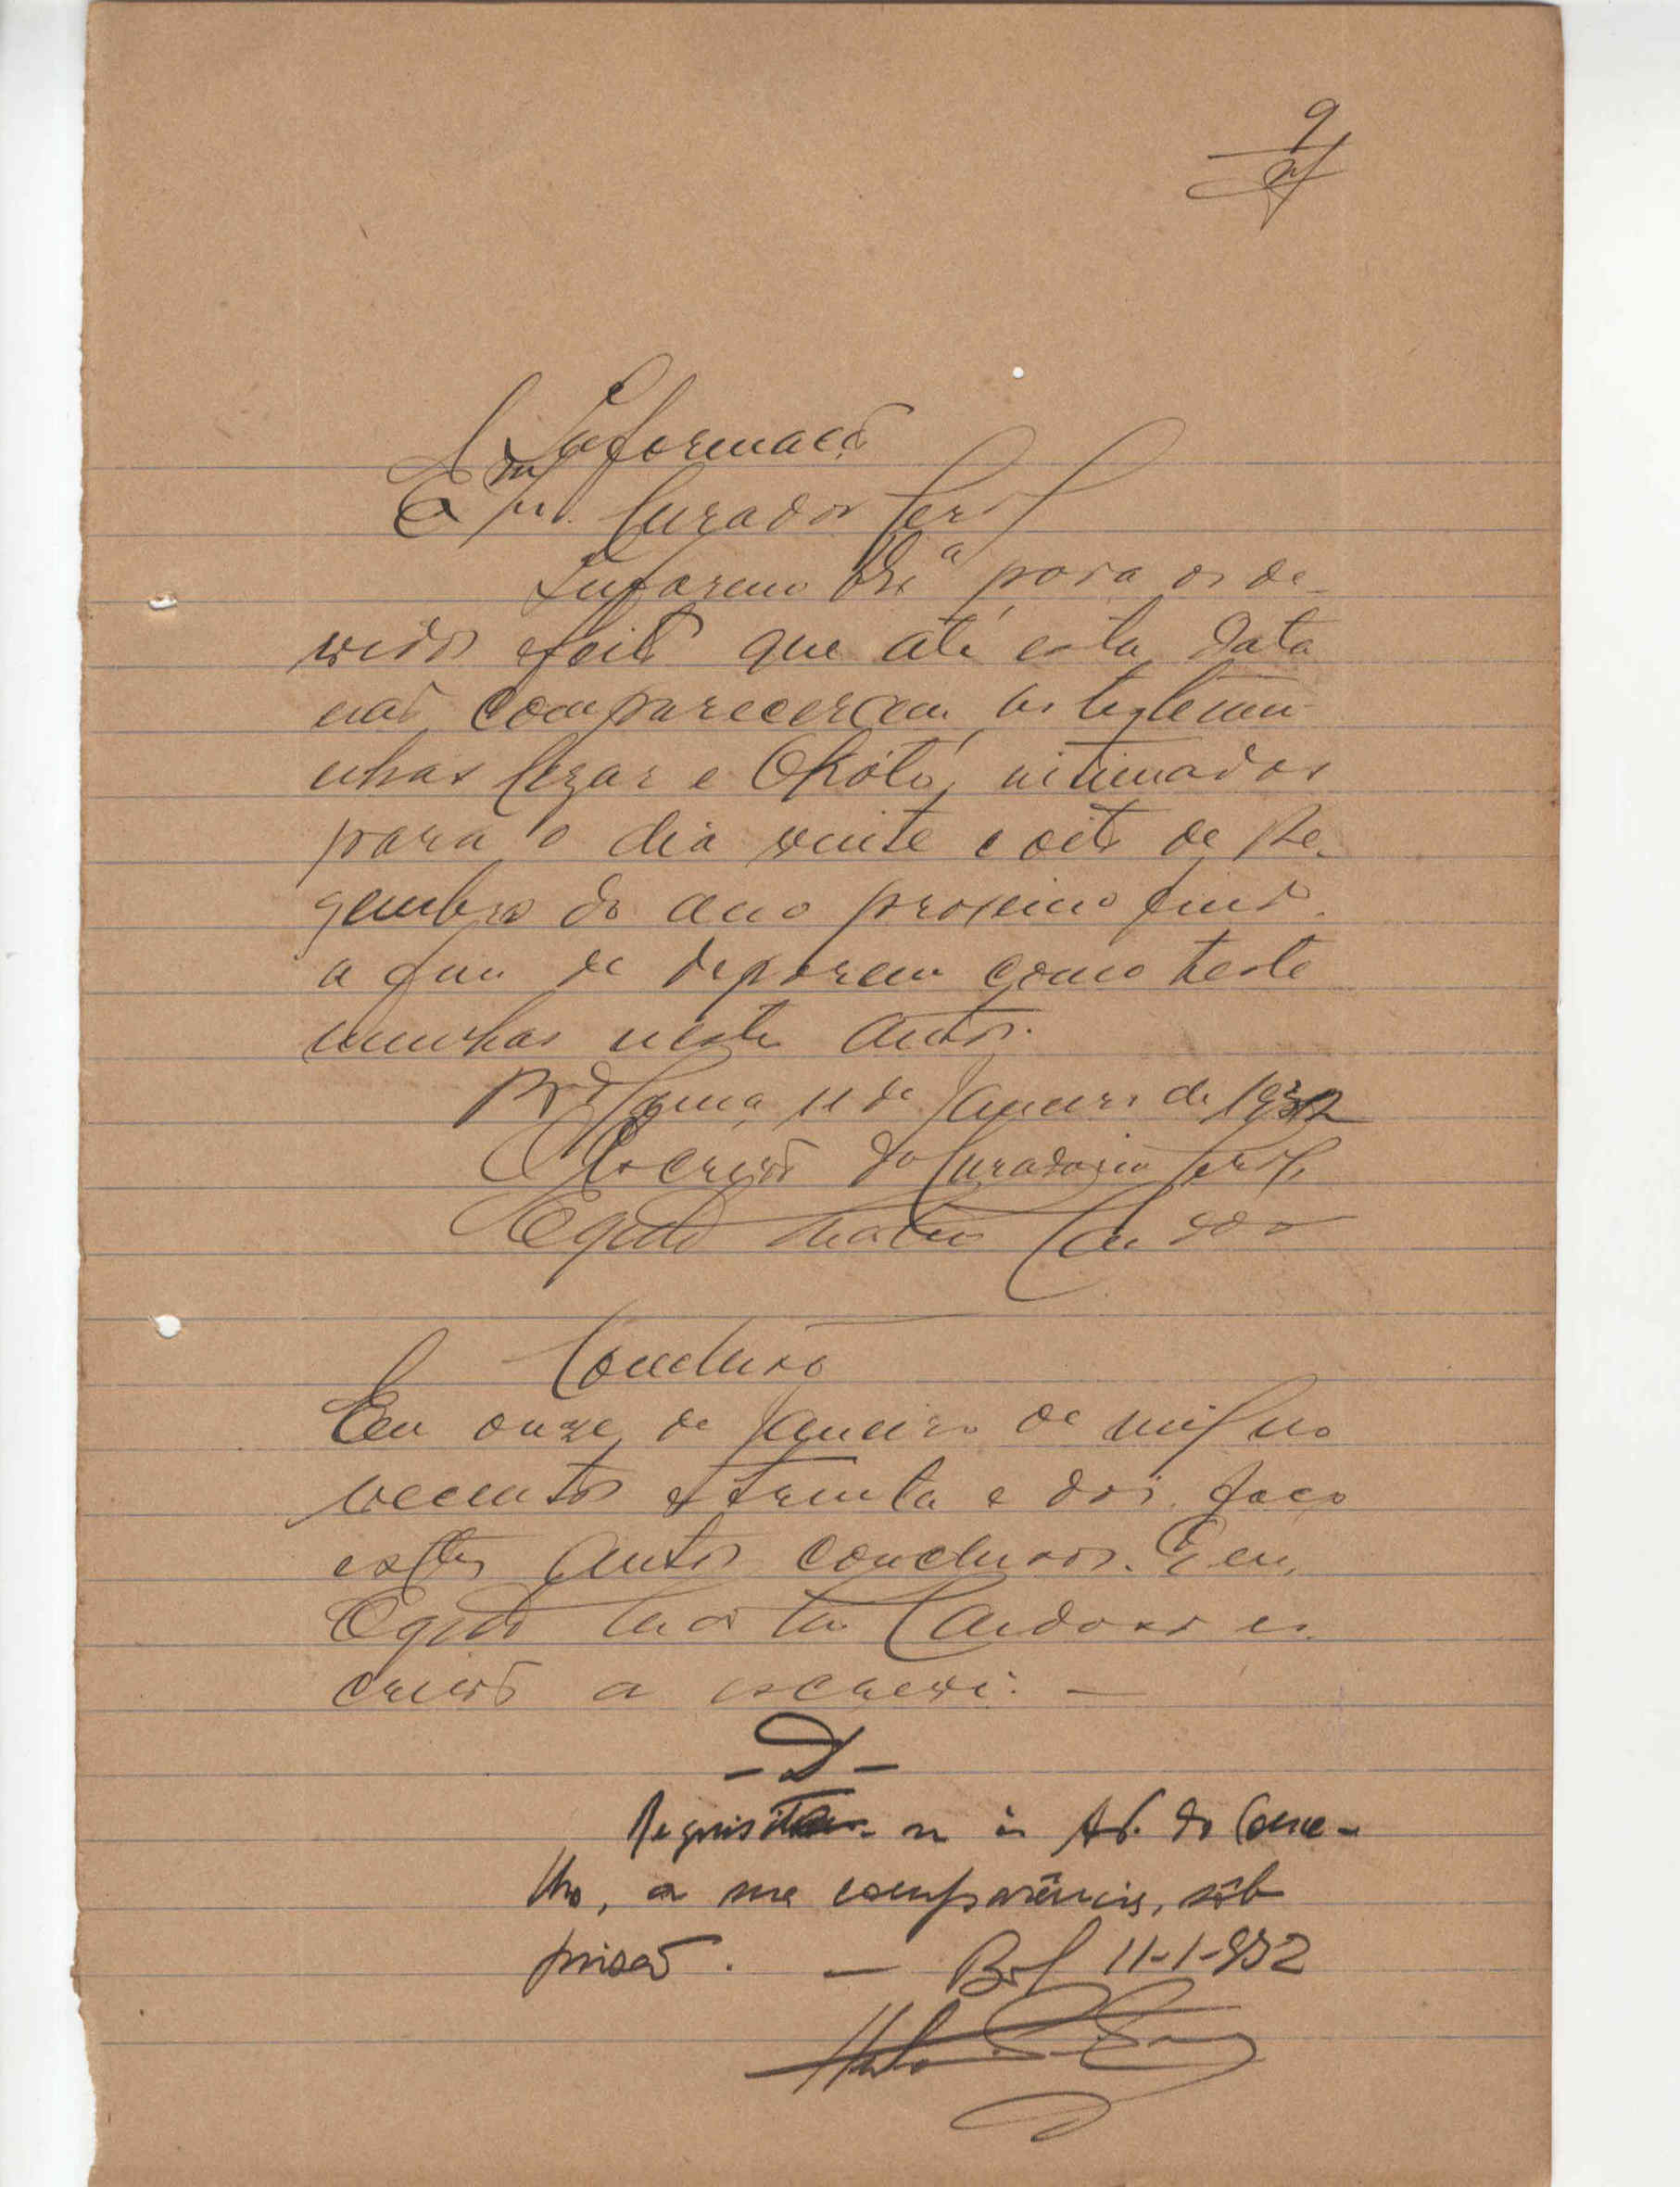 9
Informação
Exmo. Curador Geral
Informo Vxª para os de-
vidos efeitos que até esta data
não compareceram as testemu-
nhas Cezar e Okótó, intimados
para o dia vinte e oito de De-
zembro do ano proximo findo
a fim de deporem como teste
munhas nestes autos.
11 de Janeiro de 1932
O Escrivão da Curadoria Geral,
Egidio Cardoso
Conclusão
Em onze de Janeiro de mil no
vecentos e trinta e dois faço
estes autos conclusos. E eu,
Egidio Cardoso es
crivão o escrevi. —
- D -
Requisite-se à Ad. do Conce-
lho, a sua comparência, sôb
prisão. — Bol 11-1-932